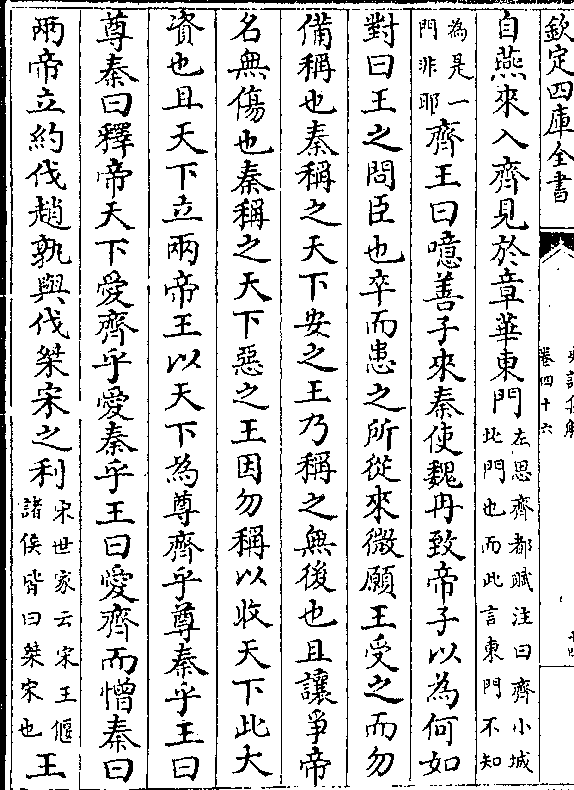 欽定四庫全書
卷四十六
自燕來入齊見於章華東門左思齊都賦注曰齊小城北門也而此言東門不知
為是一門非耶齊王曰噫善子來秦使魏冉致帝子以為何如
對曰王之問臣也卒而患之所從來微願王受之而勿
備稱也秦稱之天下安之王乃稱之無後也且讓爭帝
名無傷也秦稱之天下惡之王因勿稱以收天下此大
資也且天下立兩帝王以天下為尊齊乎尊秦乎王曰
尊秦曰釋帝天下愛齊乎愛秦乎王曰愛齊而憎秦曰
兩帝立約伐趙孰與伐桀宋之利宋世家云宋王偃諸侯皆曰桀宋也王